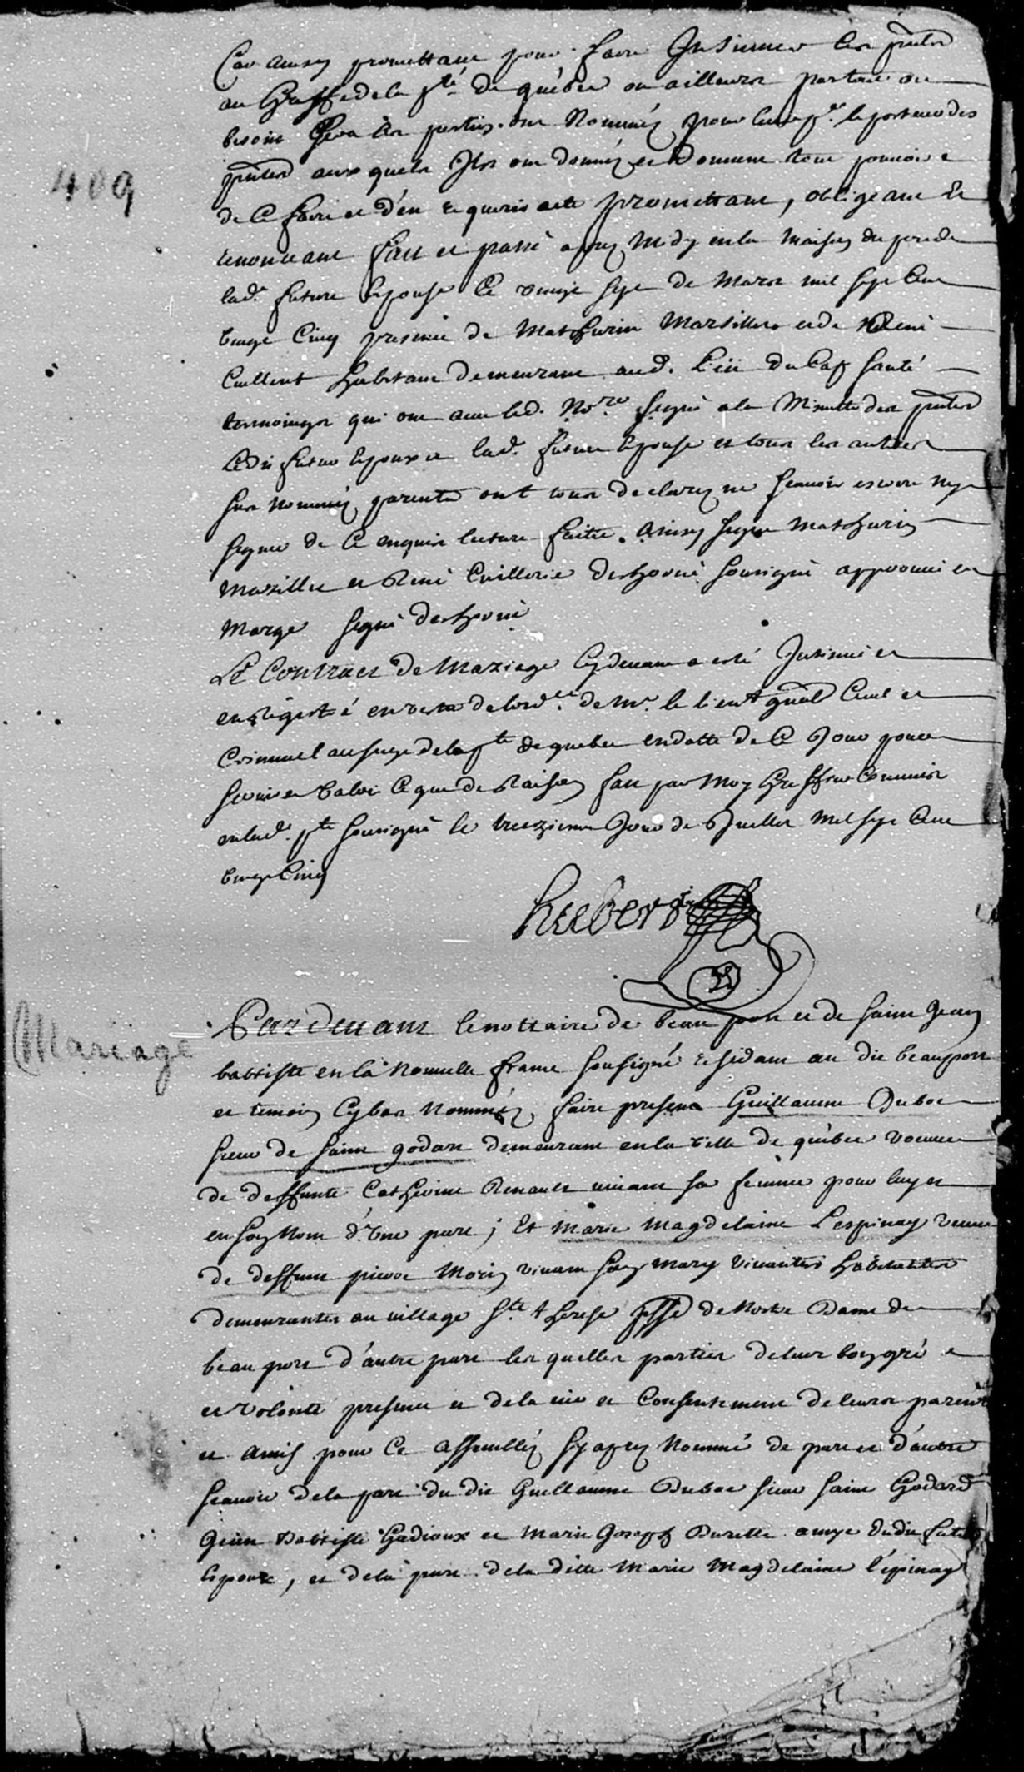 Car ainsy promettant pour faire Insinuer les pntes
au Greffe de la pté de québec ou ailleurs partout ou
besoin sera les parties ont Nommés pour leur pr. le porteur des
pntes auxquels Ils ont donnéz et Donnent tout pouvoir
409
de Ce faire et d'en Requerir acte promettant, obligeant Et
renonceant fait et passé apres midy en la maison du pere de
lad. future Epouse Ce vingt sept de Mars mil sept Cent
vingt Cinq presence de Mathurin Marsillers et de René
Cuillerit habitant demeurant aud. Lieu du Cap Santé
temoingts qui ont avec led. Nore. signé a la Minutte des pntes
Ledit futur Epoux et lad. future Epouse et tous les autres
sus Nommés parents ont tous declarez ne scavoir escrire ny
signer de Ce enquis lecture faitte. Ainsy signé Mathurin
Marsillie et René Cuillerie deshorné soussigné approuvé en
Marge signé deshorné
Le Contract de Mariage Cy devant a esté Insinué et
enRegistré en vertu de lord. de Mr. le lieut gnál Civil et
Criminel au siege de la pté de quebec en datte de Ce Jour pour
servir et valoir Ce que de Raison fait par Moy Greffier Commis
en lad. pté soussigné le treizieme Jour de Juillet Mil sept Cent
vingt Cinq
hubert
Mariage
Pardevant le nottaire de beauport et de saint Jean
battiste en la Nouvelle france sousigné Residant au dit beauport
et temoins Cy bas Nomméz, faire present Guillaume Duboc
sieur de saint godart demeurant en la ville de québec veuve
de deffunte Catherine Renault vivant sa femme pour luy et
en son Nom d'une part; Et Marie Magdelaine Lespinay veuve
de deffunt pierre Morin vivant son mary vivantes habitantes
demeurantes au village Ste therese Jesse de Nostre Dame de
beauport d'autre part les quelles parties de leur bon gré
et volonté presence et de la vie et Consentement de leurs parents
et amis pour Ce assemblés sy apres Nommé de part et d'autre
scavoir de la part du dit Guillaume Duboc sieur saint Godard
Jean Battiste Gadioux et Marie Joseph Durette amye du dit futur
Epoux, et de la part de la ditte Marie Magdelaine l'épinay